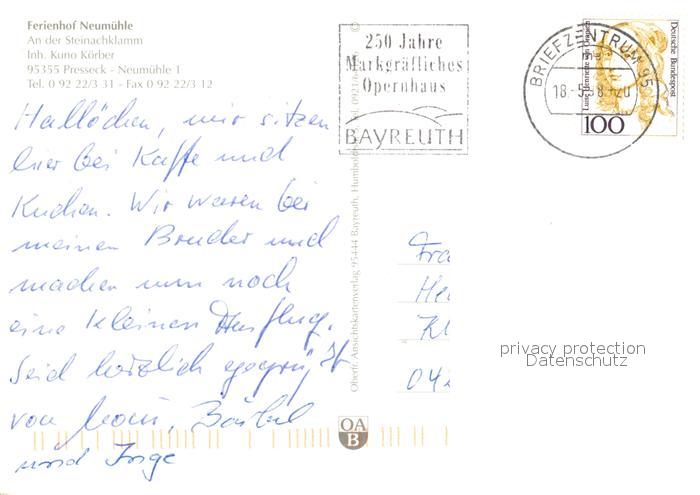 Ferienhof Neumühle
An der Steinachklamm
Inh. Kuno Körber
95355 Presseck - Neumühle 1
Tel. 0 92 22/3 31 - Fax 0 92 22/3 12
250 Jahre
Markgräfliches
Opernhaus
BAYREUTH
BRIEFZENTRUM 95
18.-5.98.-20
Deutsche Bundespost
100
Hallöchen, wir sitzen
hier bei Kaffe und
Kuchen. Wir waren bei
meinem Bruder und
machen nun noch
eine kleinen Ausflug.
Seid herzlich gegrüßt
von Bärbel
und Inge
Oberfr. Ansichtskartenverlag 95444 Bayreuth,
Fra
He
Kl
04
privacy protection
Datenschutz
OA
B